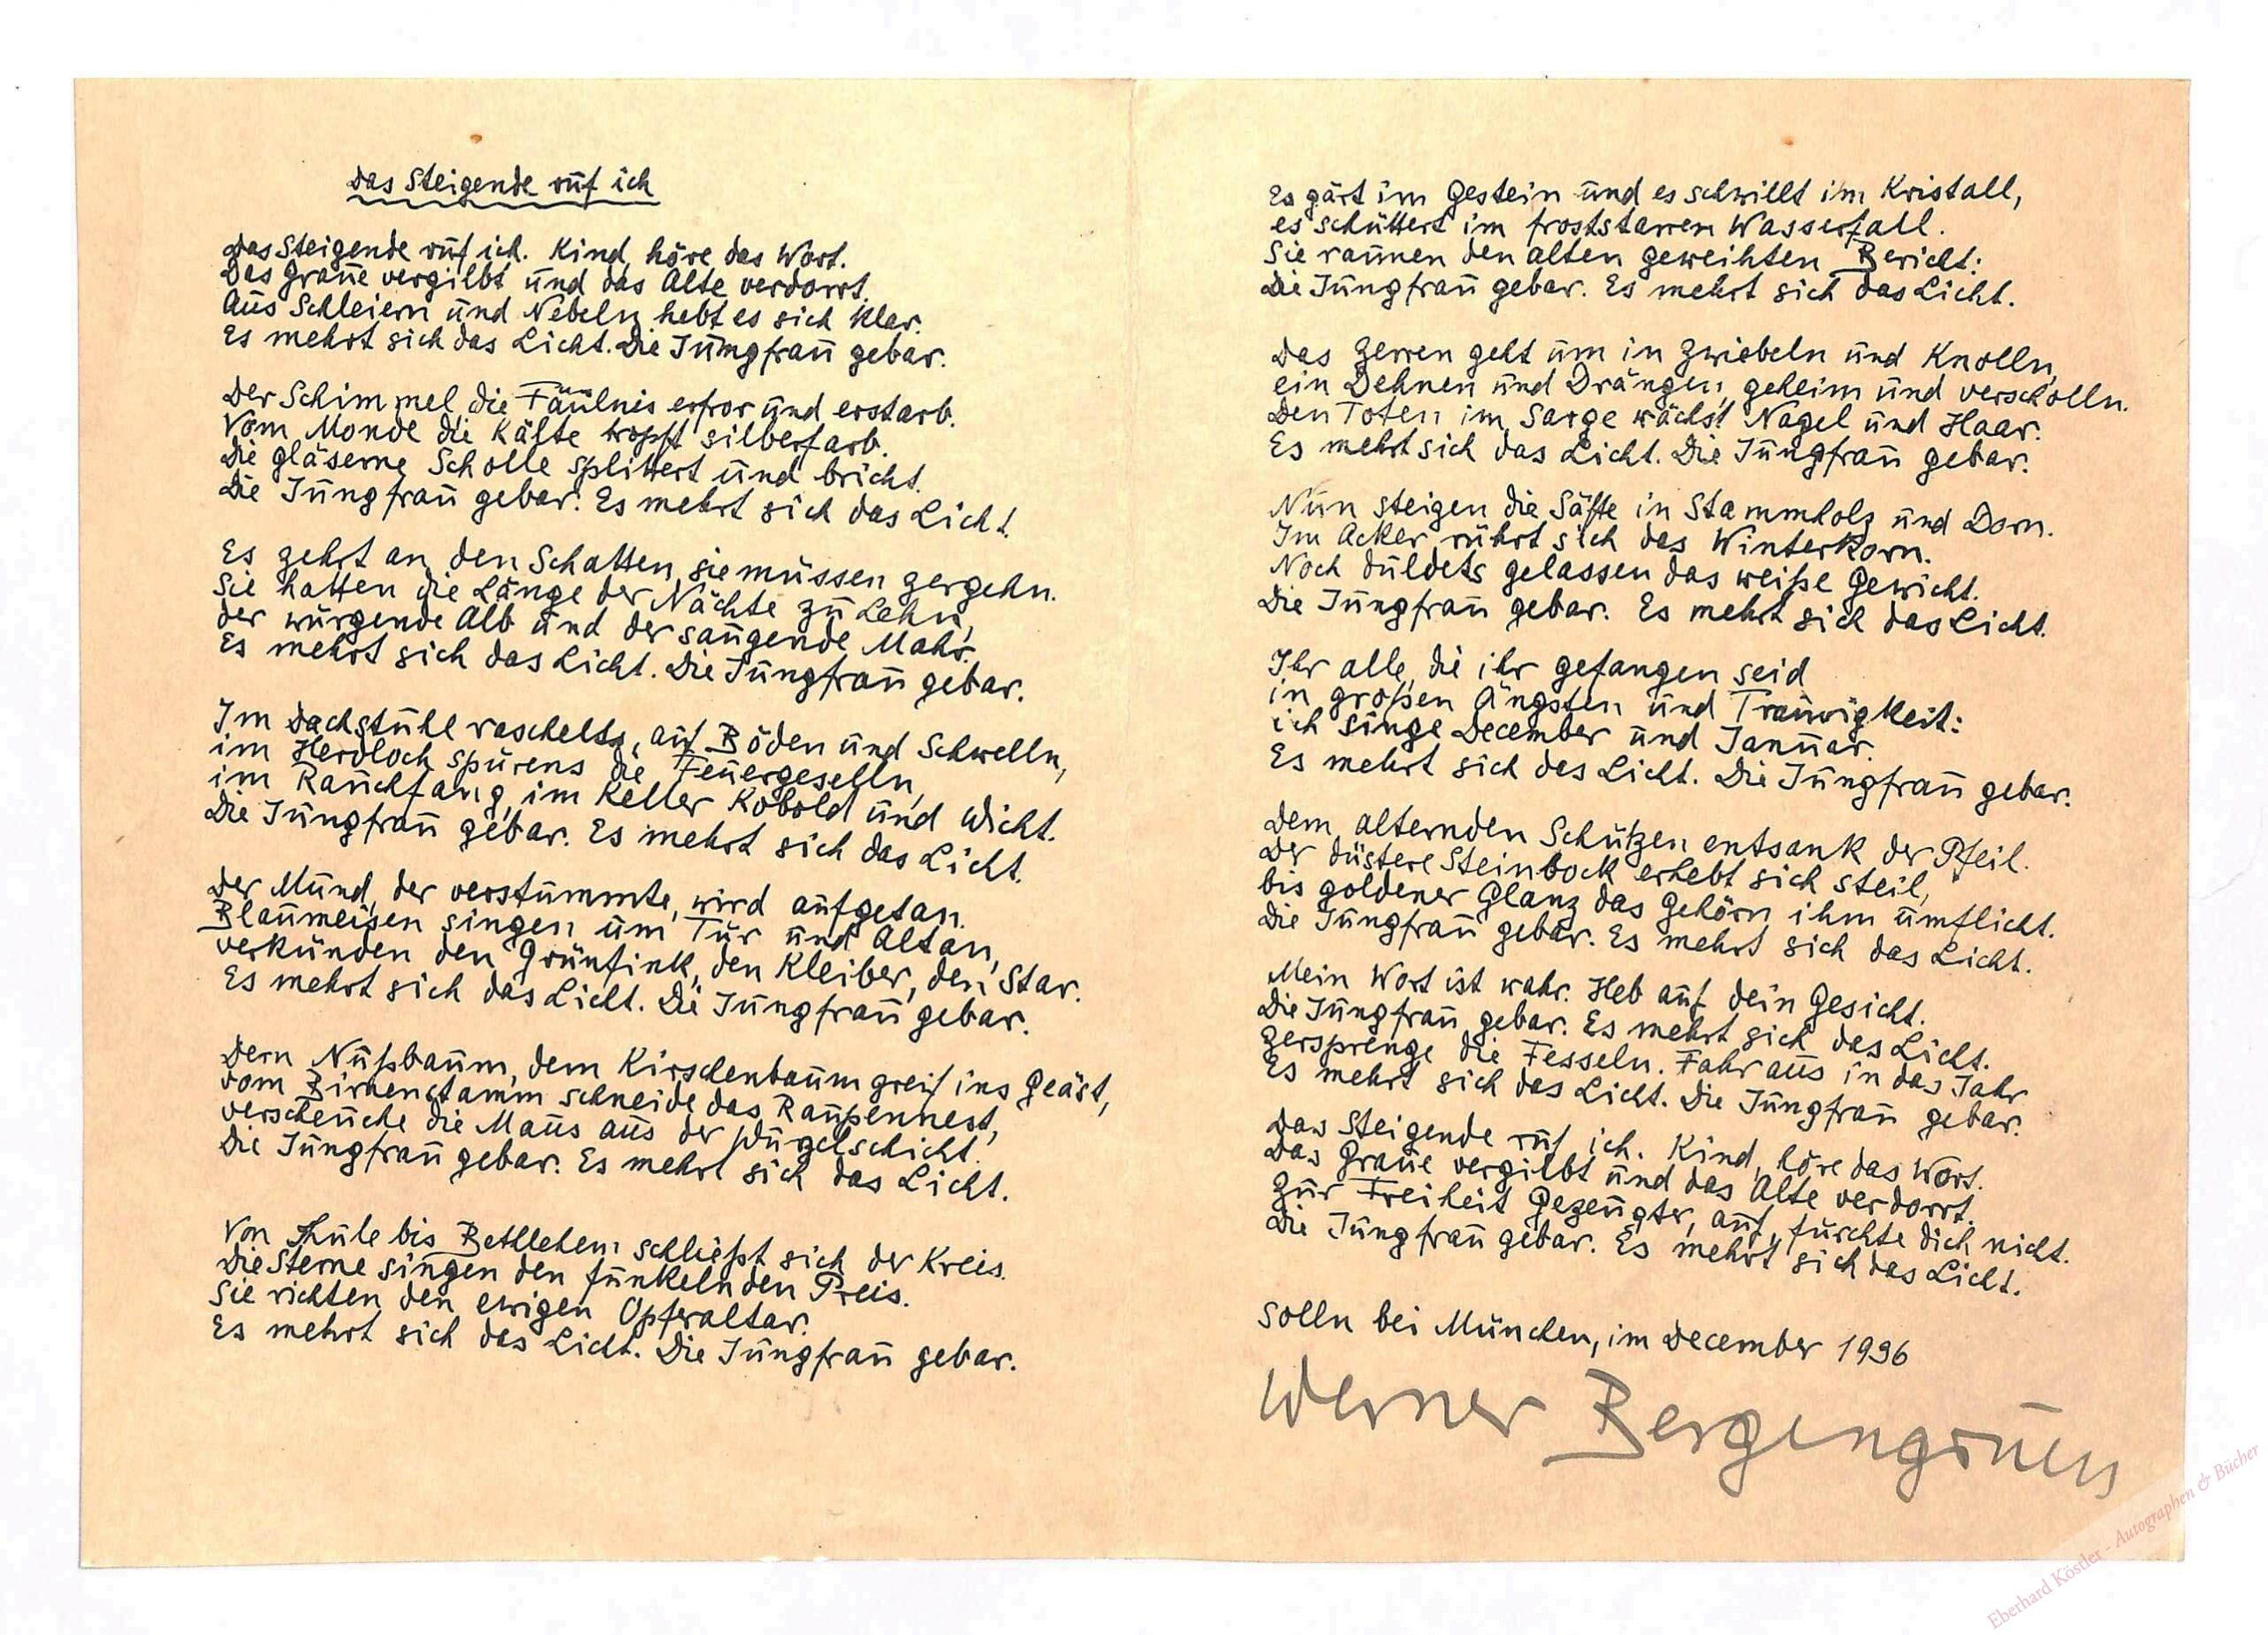 Das Steigende ruf ich
Das Steigende ruf ich. Kind, höre das Wort.
Das Graue vergilbt und das Alte verdorrt.
Aus Schleiern und Nebeln hebt es sich klar.
Es mehrt sich das Licht. Die Jungfrau gebar.
Der Schimmel, die Fäulnis erfror und erstarb.
Vom Monde die Kälte tropft silberfarb.
Die gläserne Scholle splittert und bricht.
Die Jungfrau gebar. Es mehrt sich das Licht.
Es zehrt an den Schatten, sie müssen zergehn.
Sie hatten die Länge der Nächte zu Lehn,
der würgende Alb und der saugende Mahr.
Es mehrt sich das Licht. Die Jungfrau gebar.
Im Dachstuhl raschelts, auf Böden und Schwelln,
im Herdloch spürens die Feuergeselln,
im Rauchfang, im Keller Kobold und Wicht.
Die Jungfrau gebar. Es mehrt sich das Licht.
Der Mund, der verstummte, wird aufgetan.
Blaumeisen singen um Tür und Altan,
verkünden den Grünfink, den Kleiber, den Star.
Es mehrt sich das Licht. Die Jungfrau gebar.
Dem Nußbaum, dem Kirschenbaum greif ins Geäst,
vom Birnenstamm schneide das Raupennest,
verscheuche die Maus aus der Wurzelschicht.
Die Jungfrau gebar. Es mehrt sich das Licht.
Von Thule bis Bethlehem schließt sich der Kreis.
Die Sterne singen den funkelnden Preis.
Sie richten den ewigen Opferaltar.
Es mehrt sich das Licht. Die Jungfrau gebar.
Es gärt im Gestein und es schwillt im Kristall,
es schüttert im froststarren Wasserfall.
Sie raunen den alten geweihten Bericht:
Die Jungfrau gebar. Es mehrt sich das Licht.
Das Zerren geht um in Zwiebeln und Knolln,
ein Dehnen und Drängen, geheim und verscholln.
Den Toten im Sarge wächst Nagel und Haar.
Es mehrt sich das Licht. Die Jungfrau gebar.
Nun steigen die Säfte in Stammholz und Dorn.
Im Acker rührt sich das Winterkorn.
Noch duldets gelassen das weiße Gewicht.
Die Jungfrau gebar. Es mehrt sich das Licht.
Ihr alle, die ihr gefangen seid
in großen Ängsten und Traurigkeit:
ich singe December und Januar.
Es mehrt sich das Licht. Die Jungfrau gebar.
Dem alternden Schützen entsank der Pfeil.
Der düstere Steinbock erhebt sich steil,
bis goldener Glanz das Gehörn ihm umflicht.
Die Jungfrau gebar. Es mehrt sich das Licht.
Mein Wort ist wahr. Heb auf dein Gesicht.
Die Jungfrau gebar. Es mehrt sich das Licht.
Zersprenge die Fesseln. Fahr aus in das Jahr
Es mehrt sich das Licht. Die Jungfrau gebar.
Das Steigende ruf ich. Kind, höre das Wort.
Das Graue vergilbt und das Alte verdorrt.
Zur Freiheit Gezeugter, auf, fürchte dich nicht.
Die Jungfrau gebar. Es mehrt sich das Licht.
Solln bei München, im December 1936
Werner Bergengruen
Eberhard Köstler - Autographen & Bücher